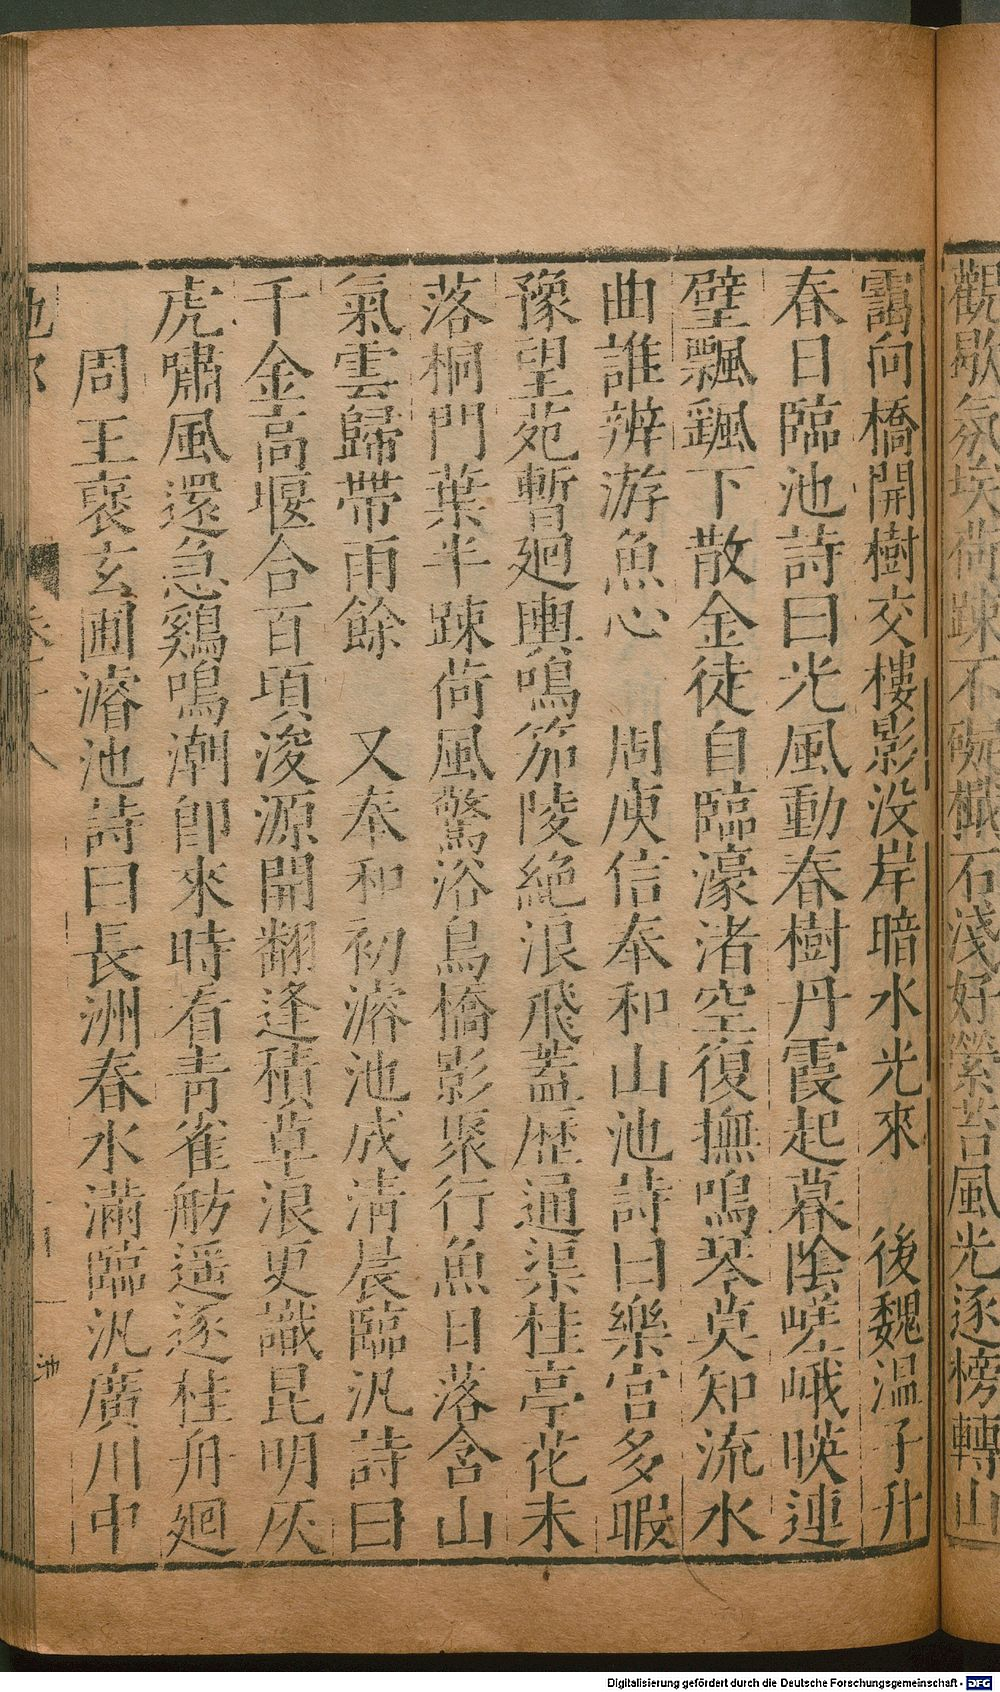 觀歇氛埃荷踈不礙檝石淺好縈苔風光逐榜轉山
靄向橋開樹交樓影没岸暗水光來　後魏温子升
春日臨池詩曰光風動春樹丹霞起暮陰嵯峨映連
璧飄颻下散金徒自臨濠渚空復撫鳴琴莫知流水
曲誰辨游魚心　周庾信奉和山池詩曰樂宮多暇
豫望苑暫廻輿鳴笳陵絶浪飛蓋歷通渠桂亭花未
落桐門葉半踈荷風驚浴鳥橋影聚行魚日落含山
氣雲歸帶雨餘　又奉和初濬池成清晨臨汎詩曰
千金高堰合百項浚源開翻逢積草浪更識昆明灰
虎嘯風還急鷄鳴潮卽來時看青雀舫遥逐桂舟廻
周王褒玄圃濬池詩曰長洲春水滿臨汎廣川中
Digitalisierung gefördert durch die Deutsche Forschungsgemeinschaft - DFG